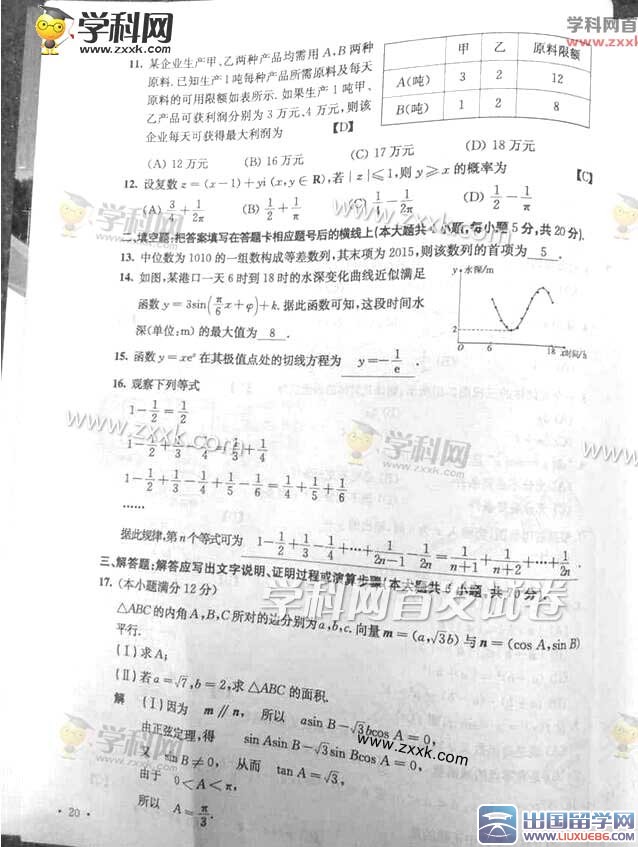 学科网
www.zxxk.com
学科网首
www.zxxk
11. 某企业生产甲、乙两种产品均需用 A,B 两种
原料.已知生产 1 吨每种产品所需原料及每天
原料的可用限额如表所示.如果生产 1 吨甲、
乙产品可获利润分别为 3 万元、4 万元,则该
企业每天可获得最大利润为 【D】
甲 乙 原料限额
A(吨) 3 2 12
B(吨) 1 2 8
(A) 12 万元 (B) 16 万元 (C) 17 万元 (D) 18 万元
12. 设复数 z=(x−1)+yi (x,y∈R),若|z|≤1,则 y≥x 的概率为 【C】
(A) 3/4+1/2π (B) 1/2+1/π (C) 1/4−1/2π (D) 1/2−1/π
学科网
www.zxxk.com
二、填空题:把答案填写在答题卡相应题号后的横线上(本大题共4小题,每小题5分,共20分).
13. 中位数为 1010 的一组数构成等差数列,其末项为 2015,则该数列的首项为 5 .
14. 如图,某港口一天 6 时到 18 时的水深变化曲线近似满足
函数 y=3sin(π/6 x+φ)+k.据此函数可知,这段时间水
深(单位:m) 的最大值为 8 .
y 水深/m
2
O 6 18 x时间/h
15. 函数 y=xeˣ 在其极值点处的切线方程为 y=−1/e .
16. 观察下列等式
1−1/2=1/2
1−1/2+1/3−1/4=1/3+1/4
1−1/2+1/3−1/4+1/5−1/6=1/4+1/5+1/6
……
www.zxxk.com
学科网
www.zxxk.com
据此规律,第 n 个等式可为 1−1/2+1/3−1/4+…+1/(2n−1)−1/2n=1/(n+1)+1/(n+2)+…+1/2n.
三、解答题:解答应写出文字说明、证明过程或演算步骤(本大题共6小题,共70分).
学科网首发试卷
17. (本小题满分 12 分)
△ABC的内角A,B,C所对的边分别为a,b,c.向量 m=(a,√3b) 与 n=(cos A,sin B)
平行.
(Ⅰ)求A;
(Ⅱ)若 a=√7,b=2,求 △ABC 的面积.
解 (Ⅰ)因为 m∥n, 所以 asin B−√3bcos A=0,
由正弦定理,得 sin Asin B−√3sin Bcos A=0,
又 sin B≠0, 从而 tan A=√3,
由于 0<A<π,
所以 A=π/3.
学科网
www.zxxk.com
www.zxxk.com
· 20 ·
出国留学网
www.liuxue86.com